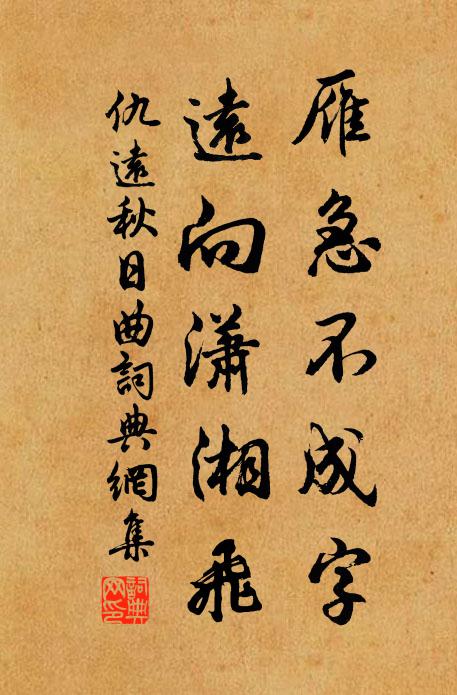 雁急不成字
遠向瀟湘飛
仇遠秋日曲詞典網集
詞典網印